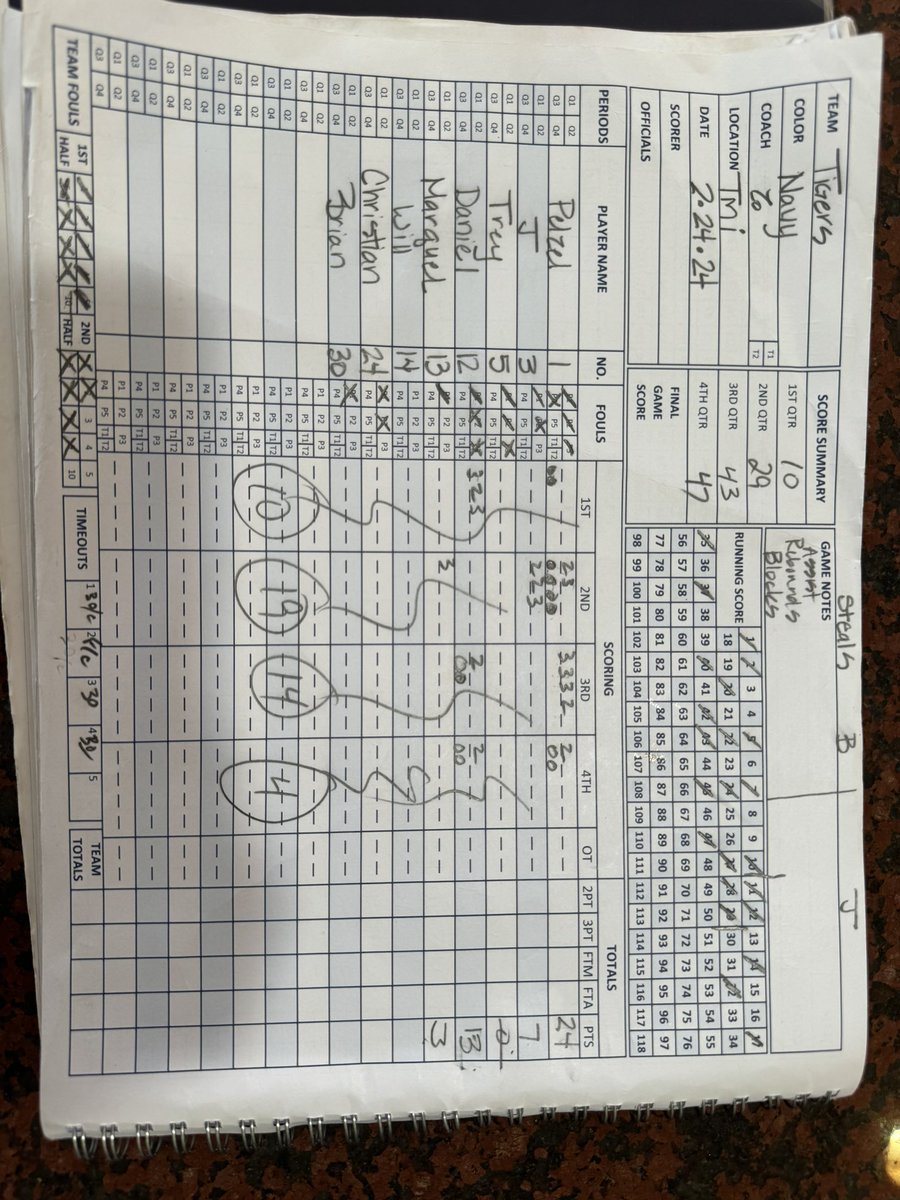 Steals B J
TEAM Tigers SCORE SUMMARY GAME NOTES
COLOR Navy 1ST QTR 10 Assist
COACH T1 2ND QTR 29 Rebounds
T2 Blocks
LOCATION TMI 3RD QTR 43 RUNNING SCORE 1 2 3 4 5 6 7 8 9 10 11 12 13 14 15 16 17
18 19 20 21 22 23 24 25 26 27 28 29 30 31 32 33 34
DATE 2.24.24 4TH QTR 47 35 36 37 38 39 40 41 42 43 44 45 46 47 48 49 50 51 52 53 54 55
SCORER FINAL 56 57 58 59 60 61 62 63 64 65 66 67 68 69 70 71 72 73 74 75 76
GAME 77 78 79 80 81 82 83 84 85 86 87 88 89 90 91 92 93 94 95 96 97
OFFICIALS SCORE 98 99 100 101 102 103 104 105 106 107 108 109 110 111 112 113 114 115 116 117 118
PERIODS PLAYER NAME NO. FOULS SCORING TOTALS
1ST 2ND 3RD 4TH OT 2PT 3PT FTM FTA PTS
Q1 Q2 Pelzel 1 2 3 3 3 3 2 2 24
Q3 Q4 P4 P5 T1 T2
Q1 Q2 J 3 P3 2 2 3 7
Q3 Q4 P4 P5 T1 T2
Q1 Q2 Trey 5 0
Q3 Q4 P4 P5 T1 T2
Q1 Q2 Daniel 12 3 2 3 2 2 13
Q3 Q4 P4 P5 T1 T2
Q1 Q2 Marquel 13 P2 P3 3 3
Q3 Q4 P4 P5 T1 T2
Q1 Q2 Will 14 P1 P2 P3
Q3 Q4 P4 P5 T1 T2
Q1 Q2 Christian 24 P3
Q3 Q4 P4 P5 T1 T2
Q1 Q2 Brian 30 P2 P3
Q3 Q4 P4 P5 T1 T2
Q1 Q2 P1 P2 P3
Q3 Q4 P4 P5 T1 T2
Q1 Q2 P1 P2 P3 10 19 14 4
Q3 Q4 P4 P5 T1 T2
Q1 Q2 P1 P2 P3
Q3 Q4 P4 P5 T1 T2
Q1 Q2 P1 P2 P3
Q3 Q4 P4 P5 T1 T2
Q1 Q2 P1 P2 P3
Q3 Q4 P4 P5 T1 T2
TEAM FOULS 1ST HALF 10 2ND HALF 3 4 5 10 TIMEOUTS 1 2 3 30 4 30 5 TEAM TOTALS